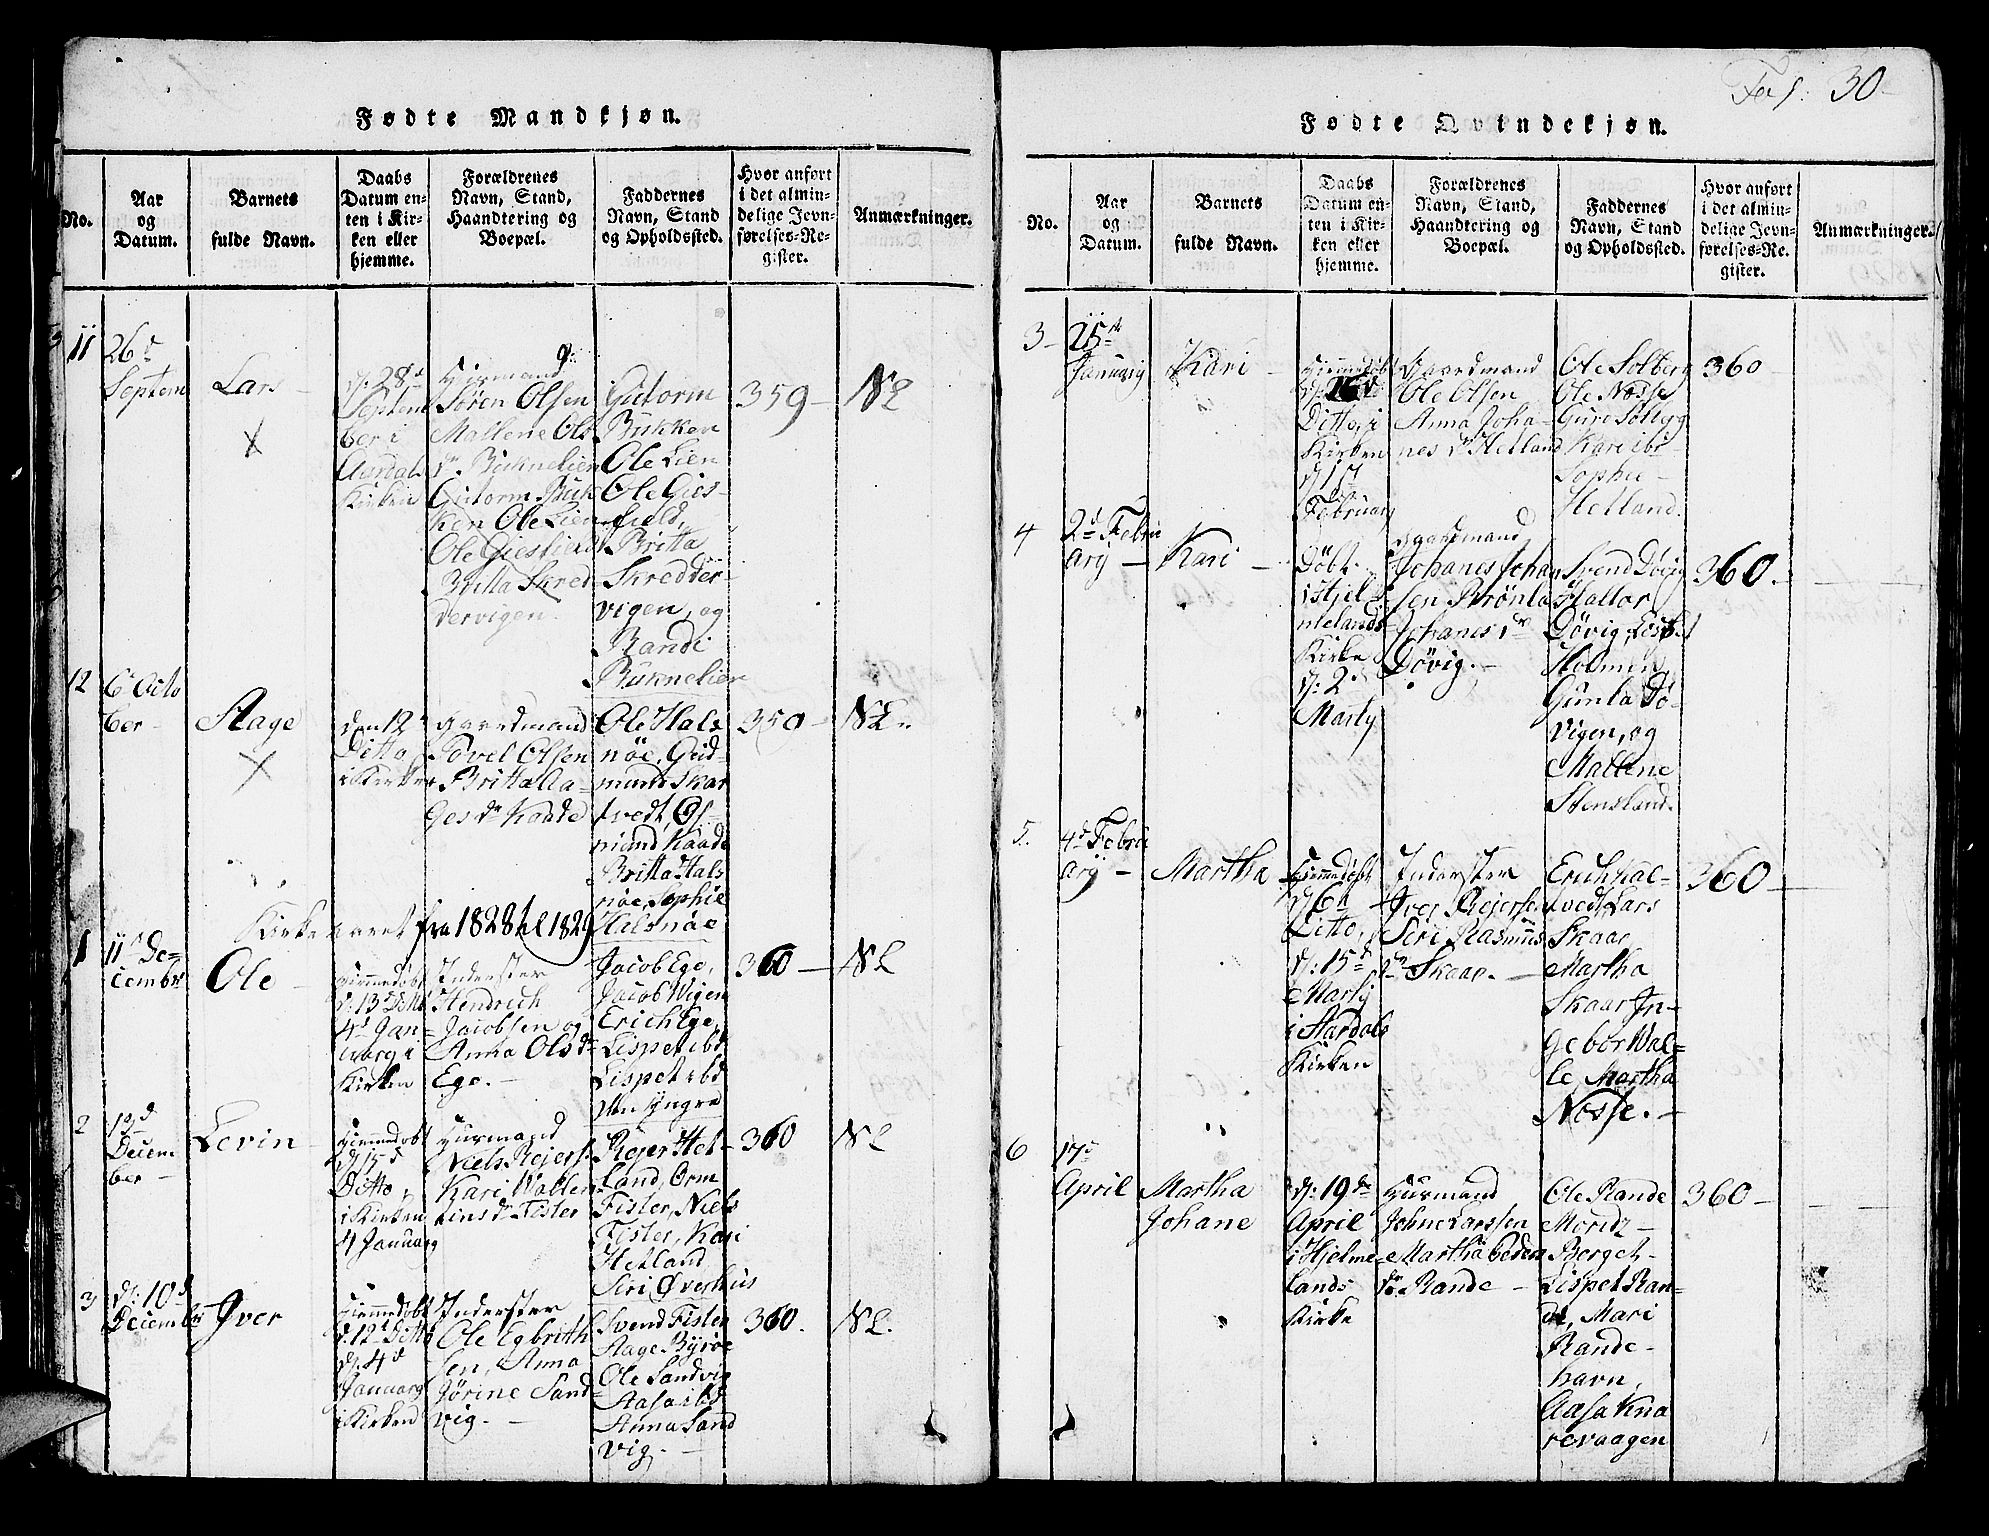 Fødte Mandkjøn.
No.
Aar
og
Datum.
Barnets
fulde Navn.
Daabs
Datum en-
ten i Kir-
ken eller
hjemme.
Forældrenes
Navn, Stand,
Haandtering og
Boepæl.
Faddernes
Navn, Stand
og Opholdssted.
Hvor anført
i det almin-
delige Jevn-
førelses-Re-
gister.
Anmærkninger.
11
26d
Septem
Lars
d: 28d
Septem
ber i
Aardals
Kirken
Huusmand
Søren Olsen
Mallene Ols
dr Buknelien
Gutorm Buk
ken Ole Lien
Ole Giesfield
Britta Skred
dervigen.
Gutorm
Bukken
Ole Lien
Ole Gies-
field,
Britta
Skredder-
vigen, og
Randi
Buknelien
359
N2
12
6d Octo
ber
Aage
den 12
Ditto
i Kirken
Gaardmand
Povel Olsen
Britta Aa-
ges dr Kaade
Ole Hals
nöe, Gud-
mund Skar
tvedt, Os-
mund Kaade
Britta Hals
nöe, Sophie
Halsnöe
350
N2.
Kirkeaaret fra 1828 til 1829
1
11d De-
cembr
Ole
Hiemmedøbt
d: 13d Ditto
4d Jan-
uarij i
Kirken
Inderster
Hendrich
Jacobsen og
Anna Ols dr
Ege.
Jacob Ege,
Jacob Vigen
Erich Ege,
Lispet ibd
Lispet ibd
360
N2
2
13d
Decem
ber
Levin
Hiemmedøbt
d: 15d
Ditto,
i Kirken
4 Januarij
Huusmand
Niels Rejers
Kari Vallen-
tins dr Fister
Rejer Het-
land, Orm
Fister, Niels
Fister, Kari
Hetland
Siri Øverhus
360
N2
3
d: 10d
Decembr
Iver
Hiemmedøbt
d: 12d Ditto
d: 4d
Januarij
i Kirken
Inderster
Ole Egbrith
sen, Anna
Jørine Sand
vig.
Svend Fister
Aage Byröe
Ole Sandvig
Aasa ibd
Anna Sand
vig.
360.
N2.
Fol: 30
Fødte Qvindekjøn.
No.
Aar
og
Datum.
Barnets
fulde Navn.
Daabs
Datum en-
ten i Kir-
ken eller
hjemme.
Forældrenes
Navn, Stand,
Haandtering og
Boepæl.
Faddernes
Navn, Stand
og Opholdssted.
Hvor anført
i det almin-
delige Jevn-
førelses-Re-
gister.
Anmærkninger.
3
25de
Januarij
Kari
Hiemmedøbt
Ditto, i
Kirken
d 1
Februarij
Gaardmand
Ole Olsen
Anna Joha-
nes dr Hetland
Ole Solberg
Ole Nosse
Kari ibd
Sophie
Hetland.
360
4
2d Febru
arij
Kari
Döbt
i Hjel-
melands
Kirke
d: 2d
Martij
Gaardmand
Johanes Johan
sen Brönla
Johanes dr
Døvig.
Svend Døvig
Hallor
Døvig, Lispet
Holmen,
Gunla Dø-
vigen, og
Mallene
Stensland.
360
5.
4d Febru
arij
Martha
Hiemmedøbt
d 6d
Ditto,
d: 15d
Martij
i Aardals
Kirken
Inderster
Iver Rejersen
Siri Rasmus
dr Skaar.
Erich Kal-
vedt, Lars
Skaar
Martha
Skaar, In-
gebor Val-
le, Martha
Nosse.
360
6
17d
April
Martha
Johane
d: 19de
April
i Hjelme-
lands
Kirke
Huusmand
Johne Larssen
Martha Peders
dr Rande
Ole Rande
Moridz
Berget
Lispet Ran-
de, Mari
Rande-
havn,
Aasa Kna
revaagen
360